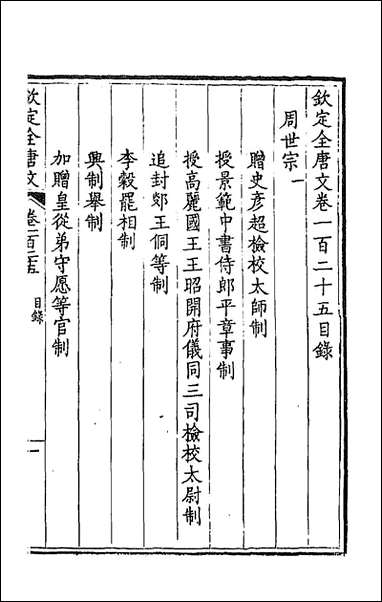 欽定全唐文卷一百二十五目錄
周世宗一
贈史彥超檢校太師制
授景範中書侍郎平章事制
授高麗國王王昭開府儀同三司檢校太尉制
追封郯王侗等制
李穀罷相制
興制舉制
加贈皇從弟守愿等官制
欽定全唐文
卷一百二十五
目錄
一